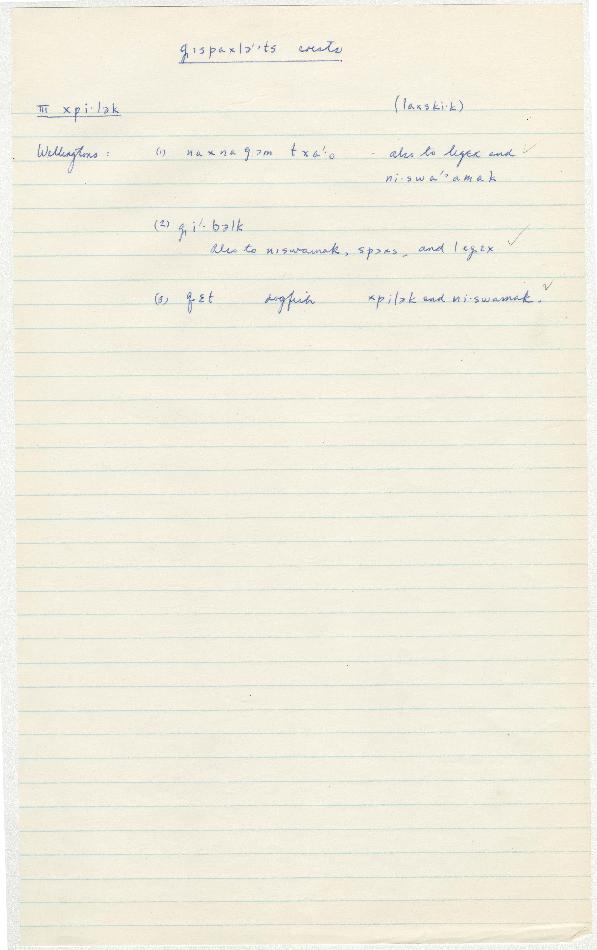 gıspaxlɔ'ʹts crests
III xpi·lək (laxski·k)
Wellingtons: (1) naxnagəm txaʹ·o - also to legɛx and ✓
ni·swaʹ'amak
(2) gıʹ·bəlk
Also to niswamak, spəxs, and legɛx ✓
(3) qɛt dogfish xpilək and ni·swamak. ✓